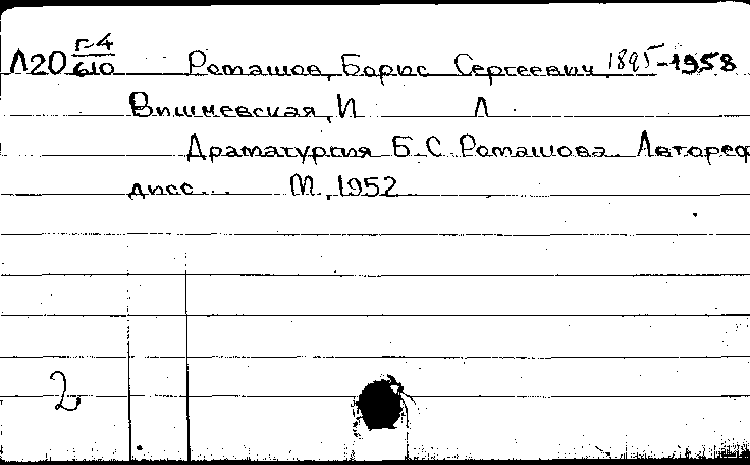 Л20 Г-4/610 Ромашов, Борис Сергеевич 1895-1958
Вишневская, И Л.
Драматургия Б.С. Ромашова. Автореф
дисс... М, 1952
2